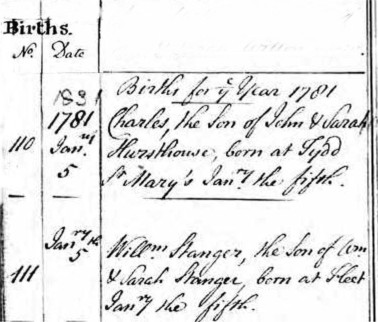 Births.
No. Date
Births for ye Year 1781
1781 Charles, the Son of John & Sarah
110 Janry Hursthouse, born at Tydd
5 St Mary's Janry the fifth.
Janry the
5 Willm Stanger, the Son of Wm
111 & Sarah Stanger, born at Fleet
Janry the fifth.